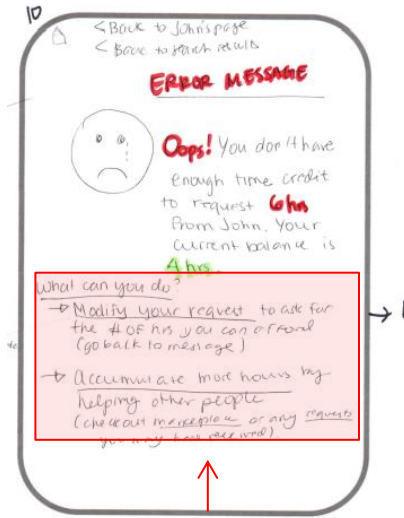 10
< Back to John's page
< Back to search results
ERROR MESSAGE
Oops! You don't have
enough time credit
to request 6 hrs
from John. Your
current balance is
4 hrs.
What can you do?
→ Modify your request to ask for
the # of hrs you can afford
(go back to message)
→ Accumulate more hours by
helping other people
(check out marketplace or any requests
you may have received)